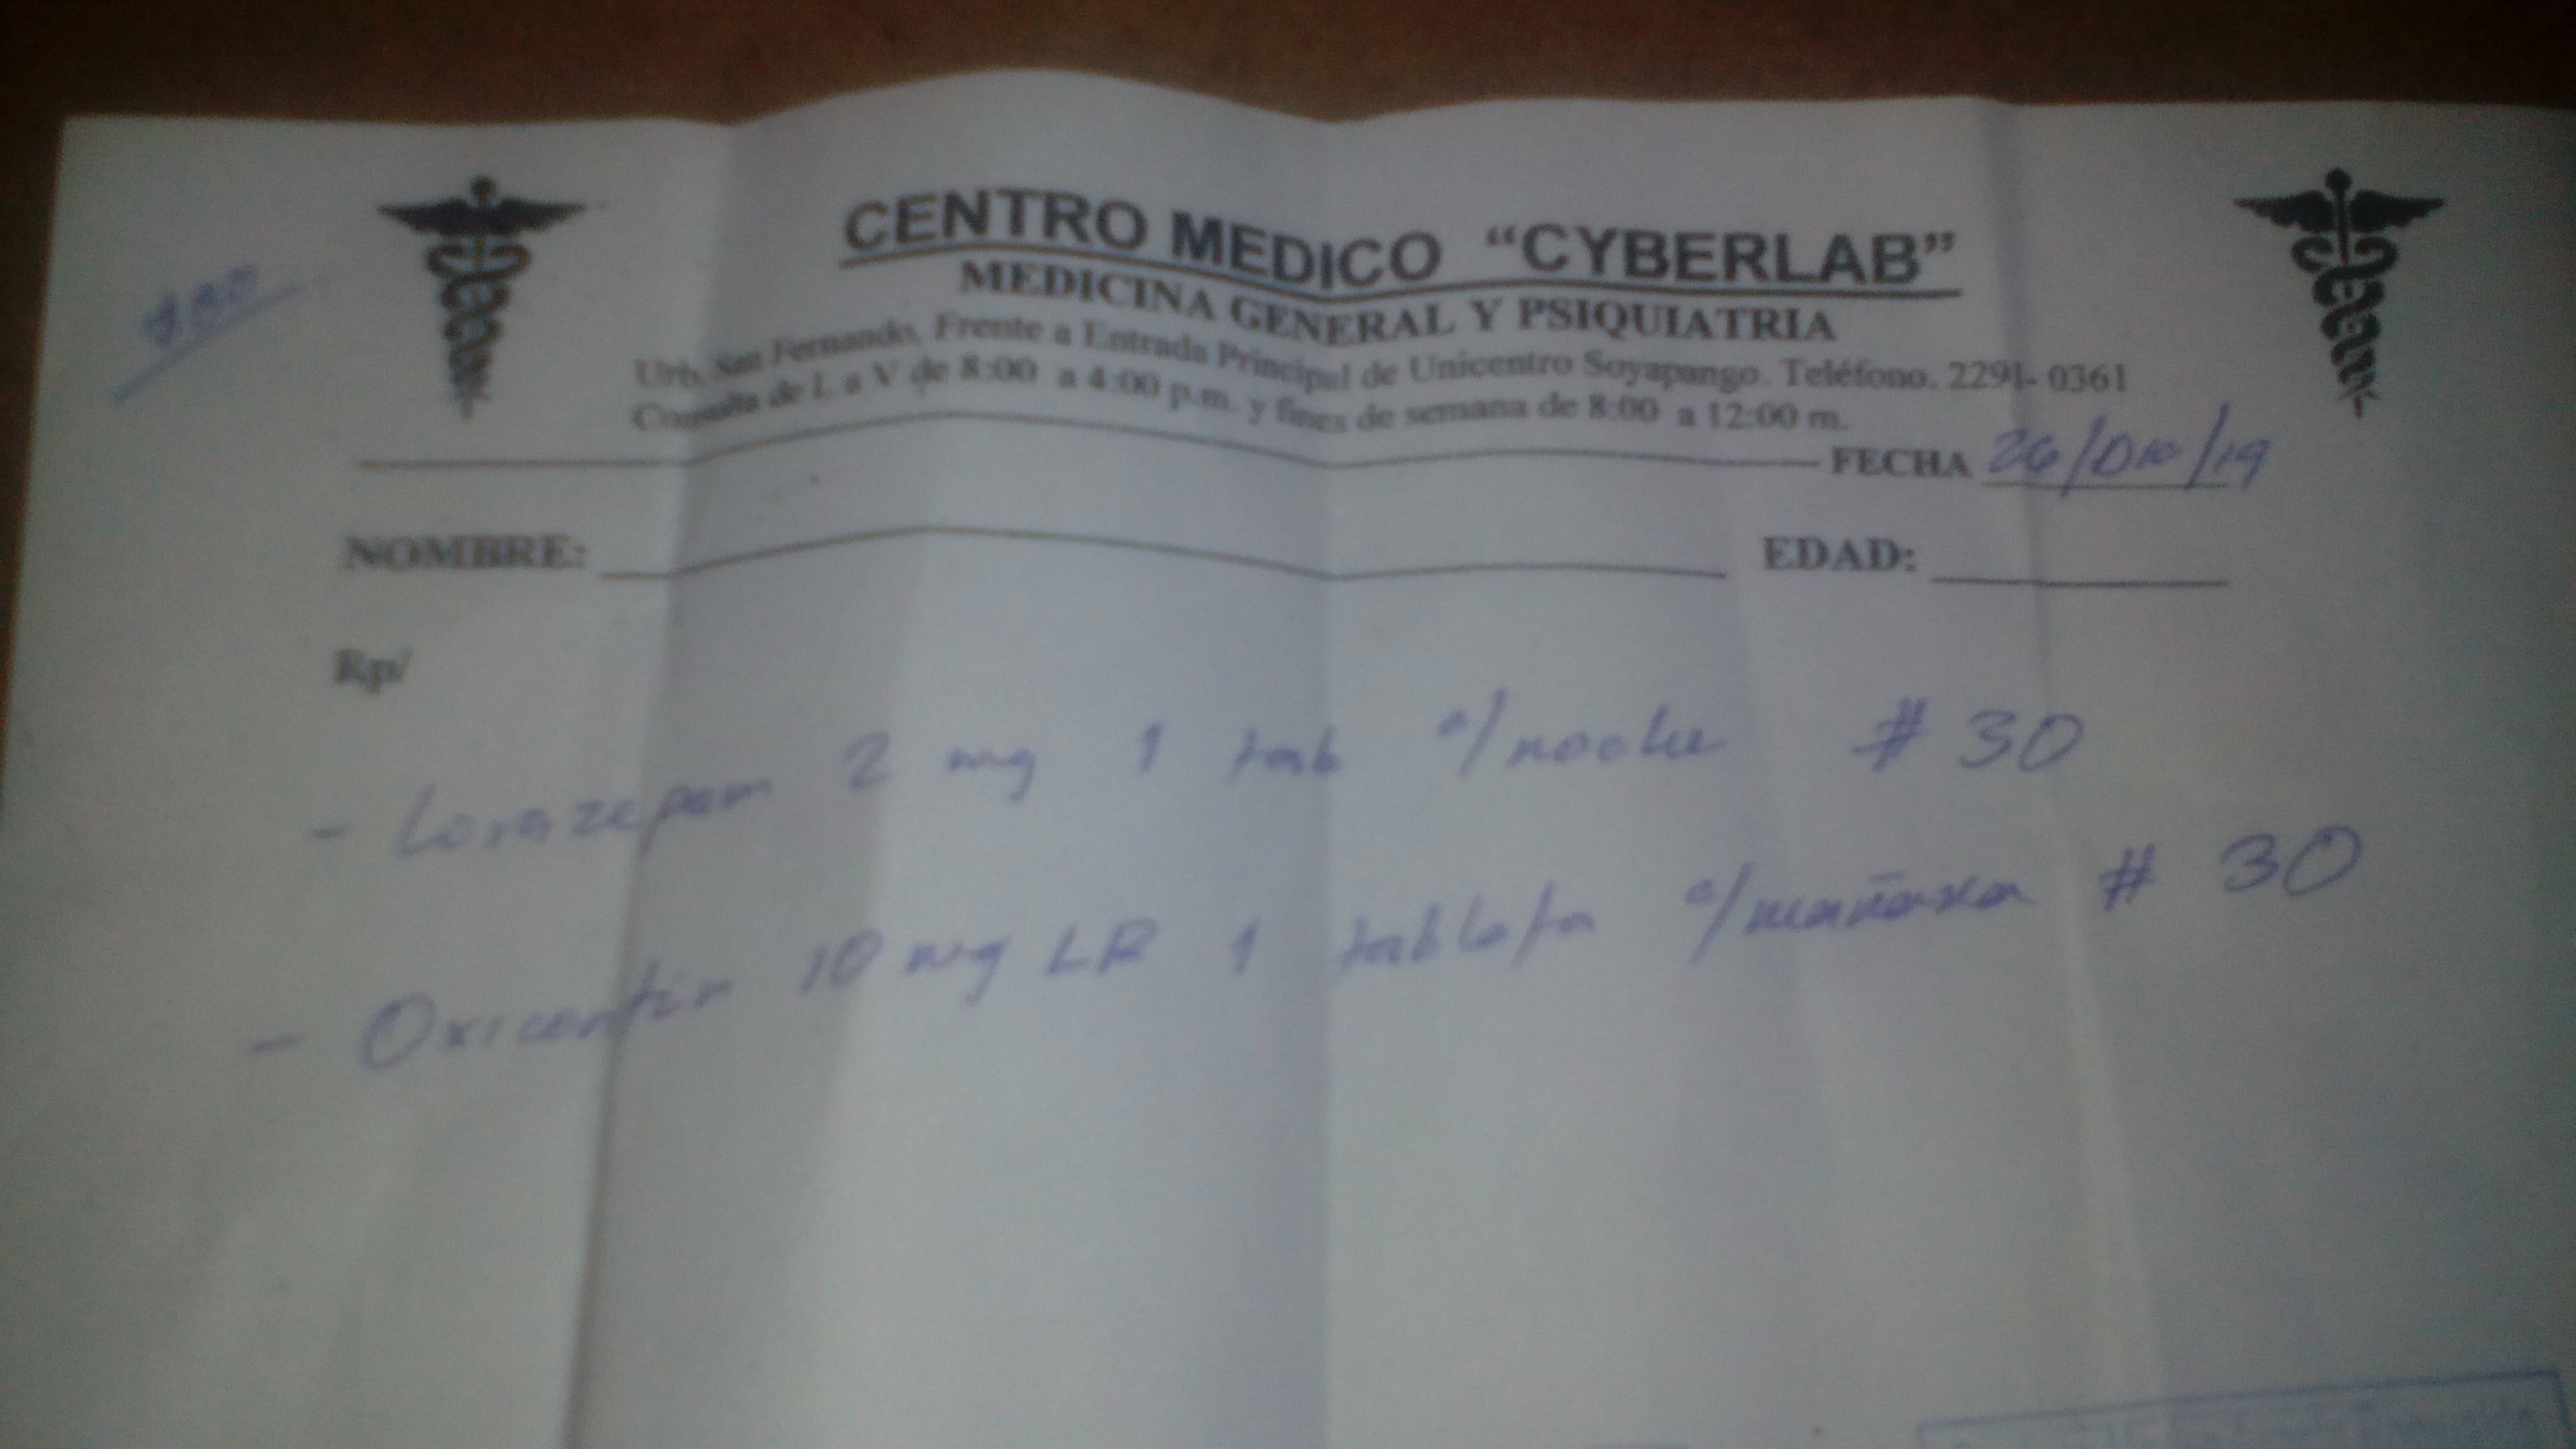 CENTRO MEDICO “CYBERLAB”
MEDICINA GENERAL Y PSIQUIATRIA
Urb. San Fernando, Frente a Entrada Principal de Unicentro Soyapango. Teléfono. 2291- 0361
Consulta de L a V de 8:00 a 4:00 p.m. y fines de semana de 8:00 a 12:00 m.
FECHA 26/Dic/19
NOMBRE: EDAD:
Rp/
- Lorazepam 2 mg 1 tab c/noche # 30
- Oxicontin 10 mg LR 1 tableta c/mañana # 30